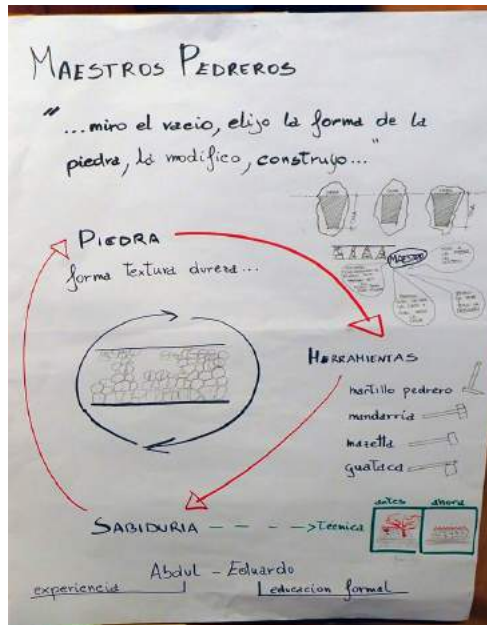 MAESTROS PEDREROS
"...miro el vacio, elijo la forma de la
piedra, la modifico, construyo..."
PIEDRA
forma textura dureza...
MAESTRO
HERRAMIENTAS
martillo pedrero
mandarria
mazetta
guataca
SABIDURIA - - - -> tecnica
antes ahora
Abdul - Eduardo
experiencia educacion formal